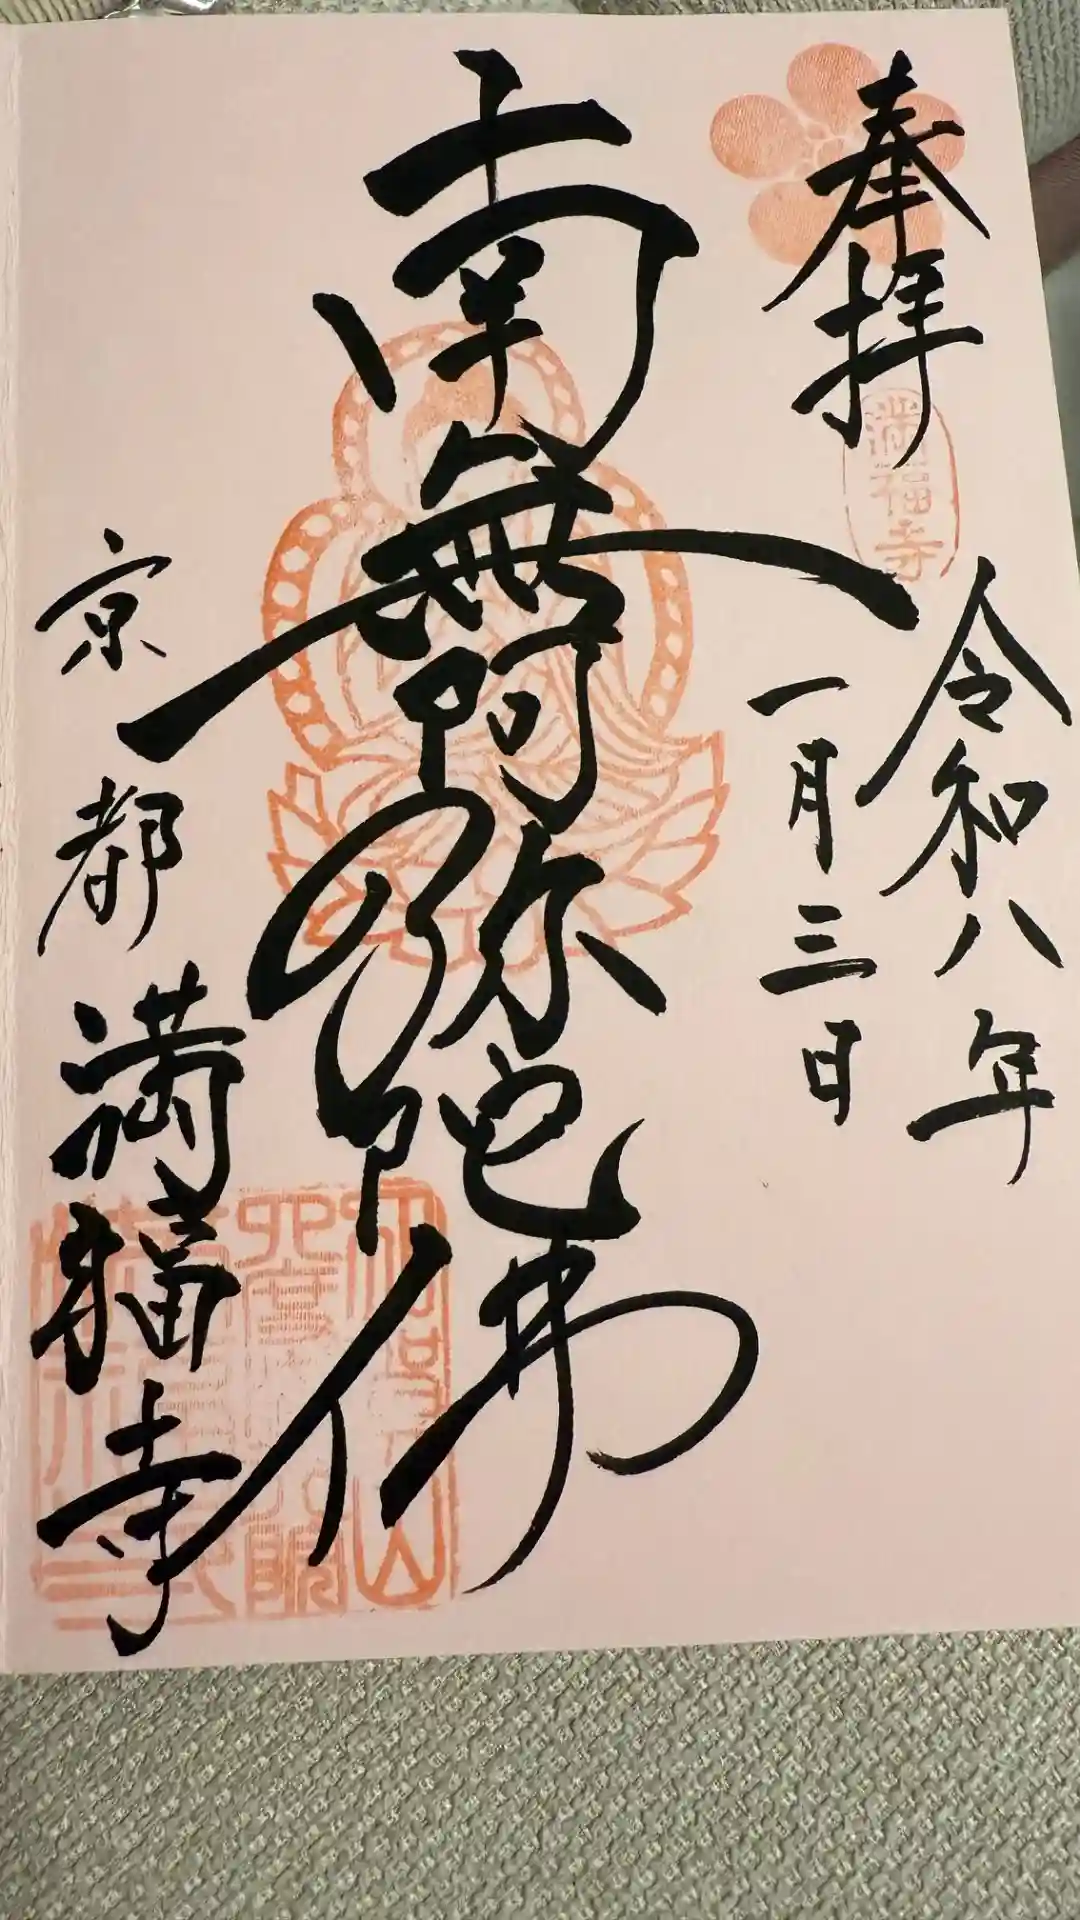 奉拝
満福寺
令和八年
一月三日
南無阿弥陀佛
京都
満福寺